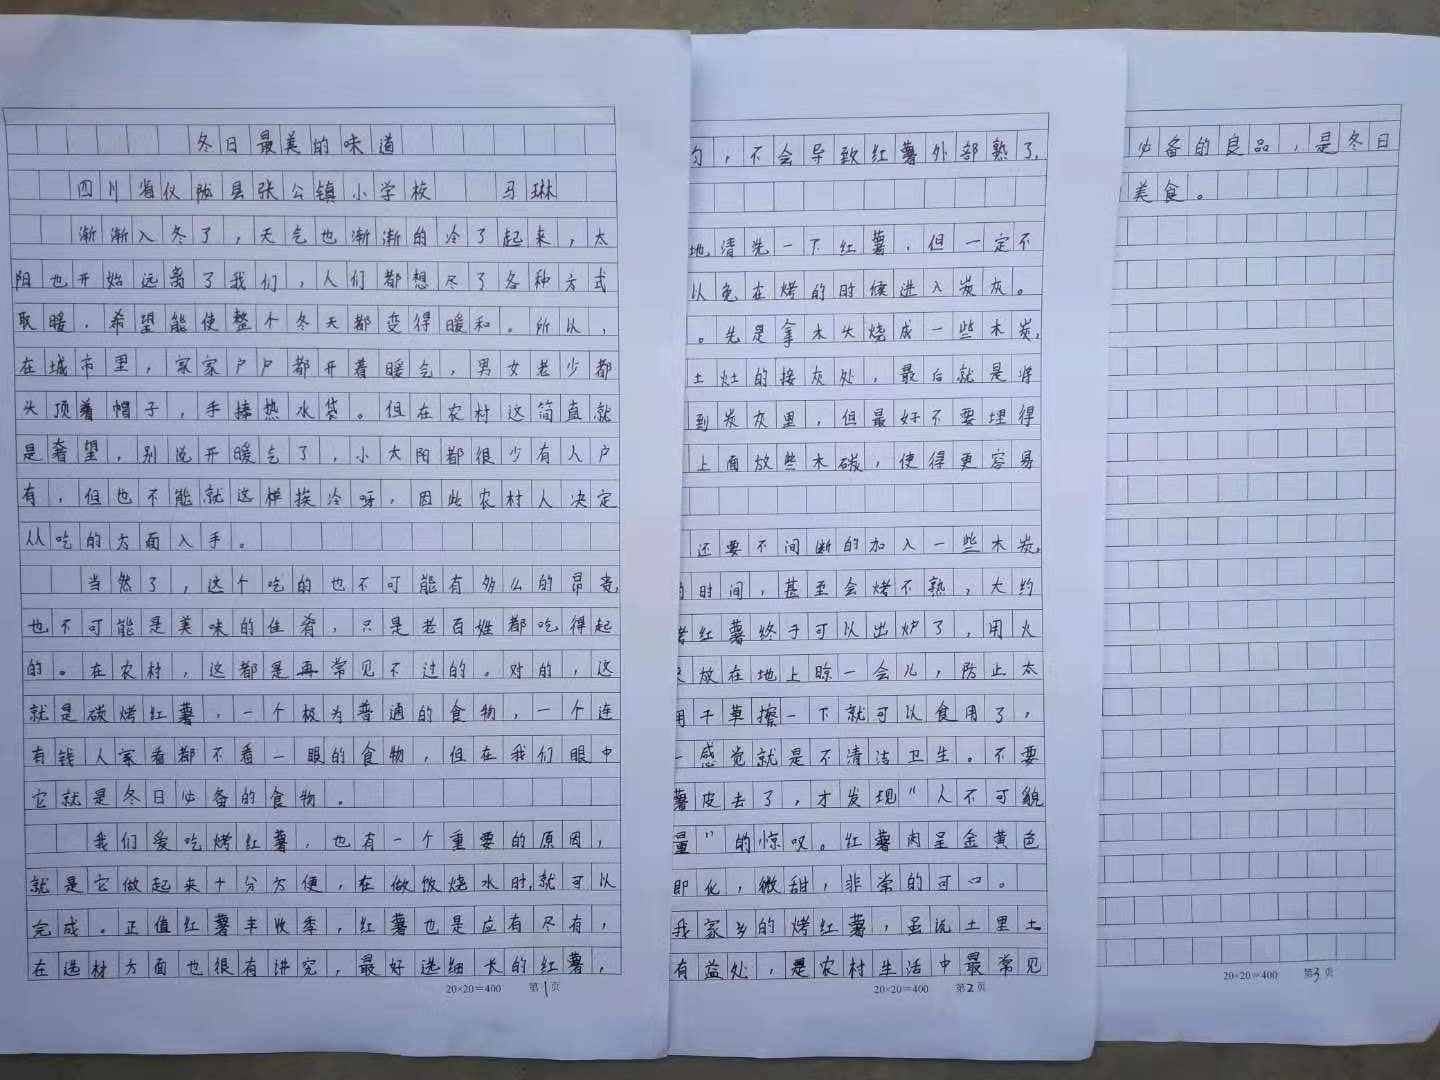 冬日最美的味道
四川省仪陇县张公镇小学校 马琳
渐渐入冬了，天气也渐渐的冷了起来，太
阳也开始远离了我们，人们都想尽了各种方式
取暖，希望能使整个冬天都变得暖和。所以，
在城市里，家家户户都开着暖气，男女老少都
头顶着帽子，手捧热水袋。但在农村这简直就
是奢望，别说开暖气了，小太阳都很少有人户
有，但也不能就这样挨冷呀，因此农村人决定
从吃的方面入手。
当然了，这个吃的也不可能有多么的昂贵，
也不可能是美味的佳肴，只是老百姓都吃得起
的。在农村，这都是再常见不过的。对的，这
就是碳烤红薯，一个极为普通的食物，一个连
有钱人家看都不看一眼的食物，但在我们眼中
它就是冬日必备的食物。
我们爱吃烤红薯，也有一个重要的原因，
就是它做起来十分方便，在做饭烧水时,就可以
完成。正值红薯丰收季，红薯也是应有尽有，
在选材方面也很有讲究，最好选细长的红薯，
20×20=400 第1页
匀，不会导致红薯外部熟了,
地清洗一下红薯，但一定不
以免在烤的时候进入炭灰。
。先是拿木火烧成一些木炭,
土灶的接灰处，最后就是将
到炭灰里，但最好不要埋得
上面放些木碳，使得更容易
还要不间断的加入一些木炭,
的时间，甚至会烤不熟，大约
烤红薯终于可以出炉了，用火
放在地上晾一会儿，防止太
用干草擦一下就可以食用了，
一感觉就是不清洁卫生。不要
薯皮去了，才发现“人不可貌
量”的惊叹。红薯肉呈金黄色
即化，微甜，非常的可口。
我家乡的烤红薯，虽说土里土
有益处，是农村生活中最常见
20×20=400 第2页
必备的良品，是冬日
美食。
20×20=400 第3页